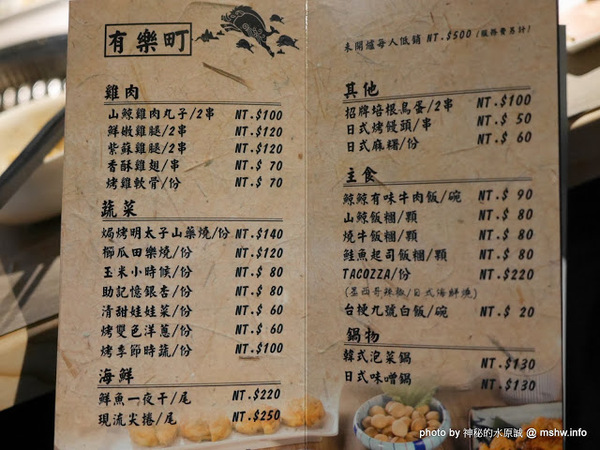 有樂町
雞肉
山鯨雞肉丸子/2串 NT.$100
鮮嫩雞腿/2串 NT.$120
紫蘇雞腿/2串 NT.$120
香酥雞翅/串 NT.$ 70
烤雞軟骨/份 NT.$ 70
蔬菜
焗烤明太子山藥燒/份 NT.$140
櫛瓜田樂燒/份 NT.$120
玉米小時候/份 NT.$ 80
助記憶銀杏/份 NT.$ 80
清甜娃娃菜/份 NT.$ 60
烤雙色洋蔥/份 NT.$ 60
烤季節時蔬/份 NT.$100
海鮮
鮮魚一夜干/尾 NT.$220
現流尖捲/尾 NT.$250
未開爐每人低銷 NT.$500 (服務費另計)
其他
招牌培根鳥蛋/2串 NT.$100
日式烤饅頭/串 NT.$ 50
日式麻糬/份 NT.$ 60
主食
鯨鯨有味牛肉飯/碗 NT.$ 90
山鯨飯糰/顆 NT.$ 80
燒牛飯糰/顆 NT.$ 80
鮭魚起司飯糰/顆 NT.$ 80
TACOZZA/份 NT.$220
(墨西哥辣椒/日式海鮮燒)
台梗九號白飯/碗 NT.$ 20
鍋物
韓式泡菜鍋 NT.$130
日式味噌鍋 NT.$130
photo by 神秘的水原誠 @ mshw.info